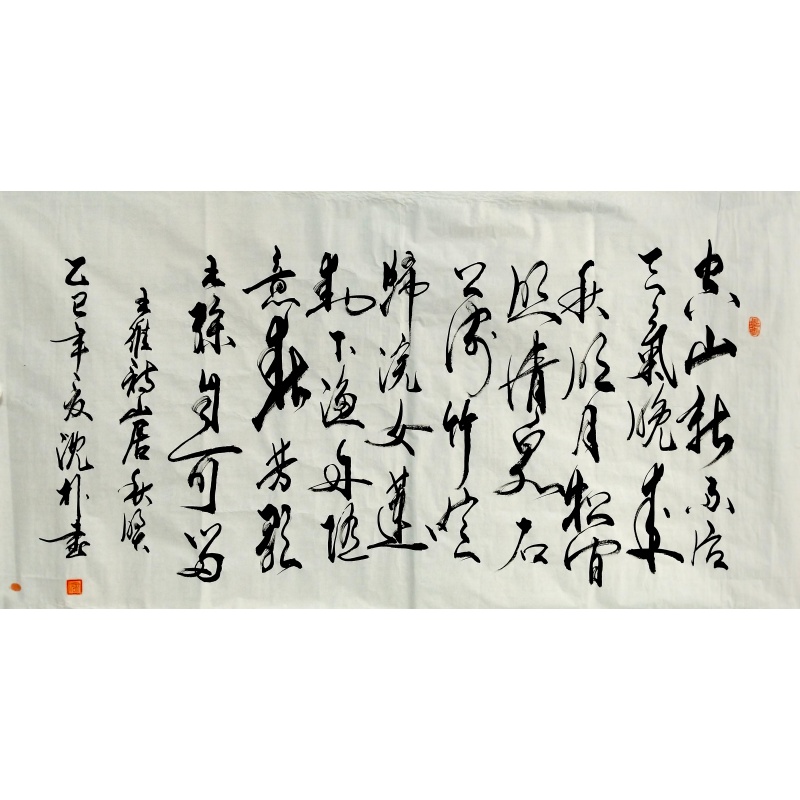 空山新雨后
天氣晚来
秋明月松间
照清泉石
上流竹喧
歸浣女蓮
動下渔舟随
意春芳歇
王孫自可留
王維诗山居秋暝
乙巳年夏沈朴書